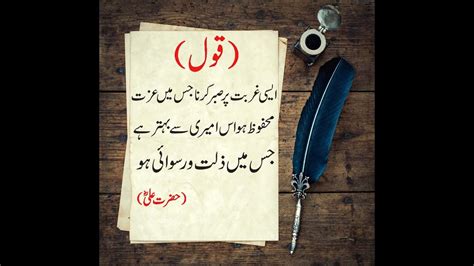 (قول)
ایسی غربت پر صبر کرنا جس میں عزت
محفوظ ہو اس امیری سے بہتر ہے
جس میں ذلت و رسوائی ہو
(حضرت علیؓ)